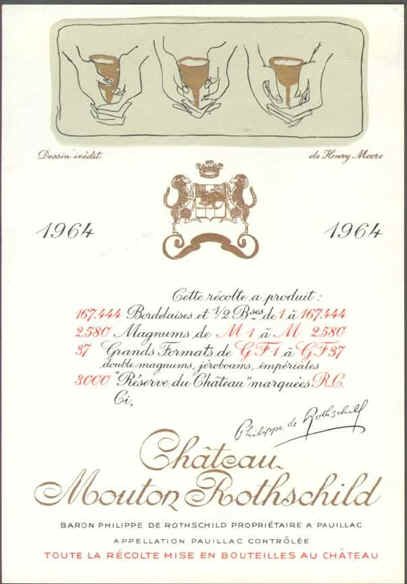 Dessin inédit de Henry Moore
1964 1964
Cette récolte a produit :
167.444 Bordelaises et 1/2 Bses de 1 à 167.444
2.580 Magnums de M 1 à M 2.580
37 Grands Formats de G F 1 à G F 37
double magnums, jéroboams, impériales
3.000 "Réserve du Château" marquées R.C.
Ci,
Philippe de Rothschild
Château
Mouton Rothschild
BARON PHILIPPE DE ROTHSCHILD PROPRIÉTAIRE A PAUILLAC
APPELLATION PAUILLAC CONTRÔLÉE
TOUTE LA RÉCOLTE MISE EN BOUTEILLES AU CHÂTEAU